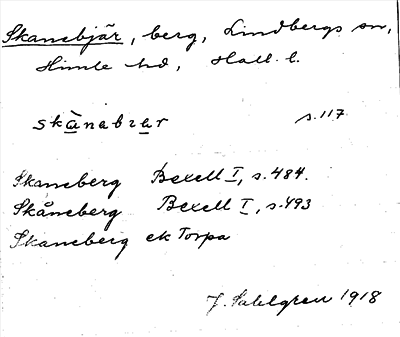 Skanebjär, berg, Lindbergs sn,
Himle hd, Hall. l.
skànabzar s.117
Skaneberg Bexell I, s.484.
Skåneberg Bexell I, s.493
Skaneberg ek Torpa
J. Sahlgren 1918